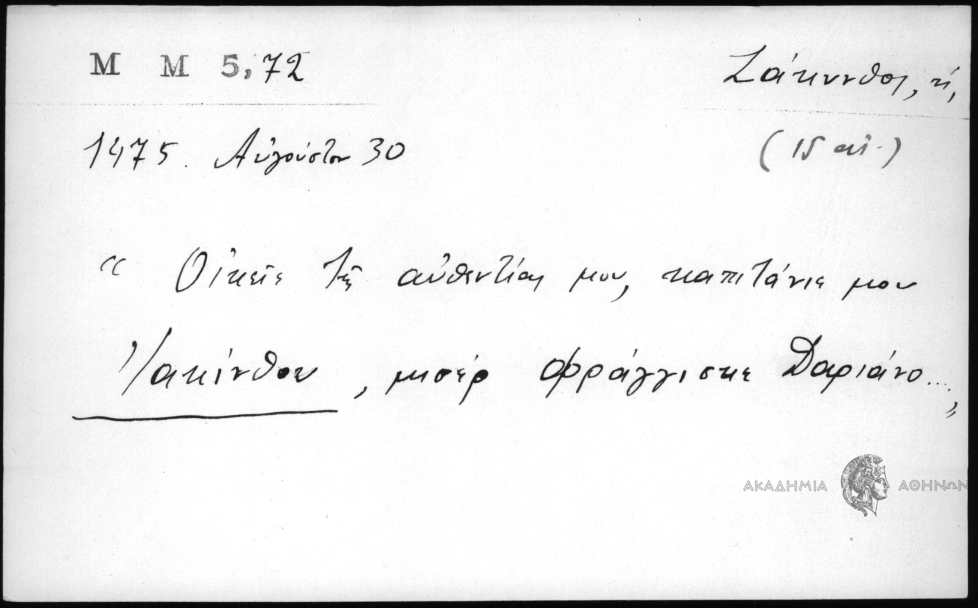 M M 5, 72
Ζάκυνθος, ἡ,
1475. Αὐγούστου 30
(15 αἰ.)
“ Οἰκεῖε τῆς αὐθεντίας μου, καπιτάνιε μου
Ὑακίνθου, μισέρ Φράγγισκε Δαριάνο...„
ΑΚΑΔΗΜΙΑ ΑΘΗΝΩΝ